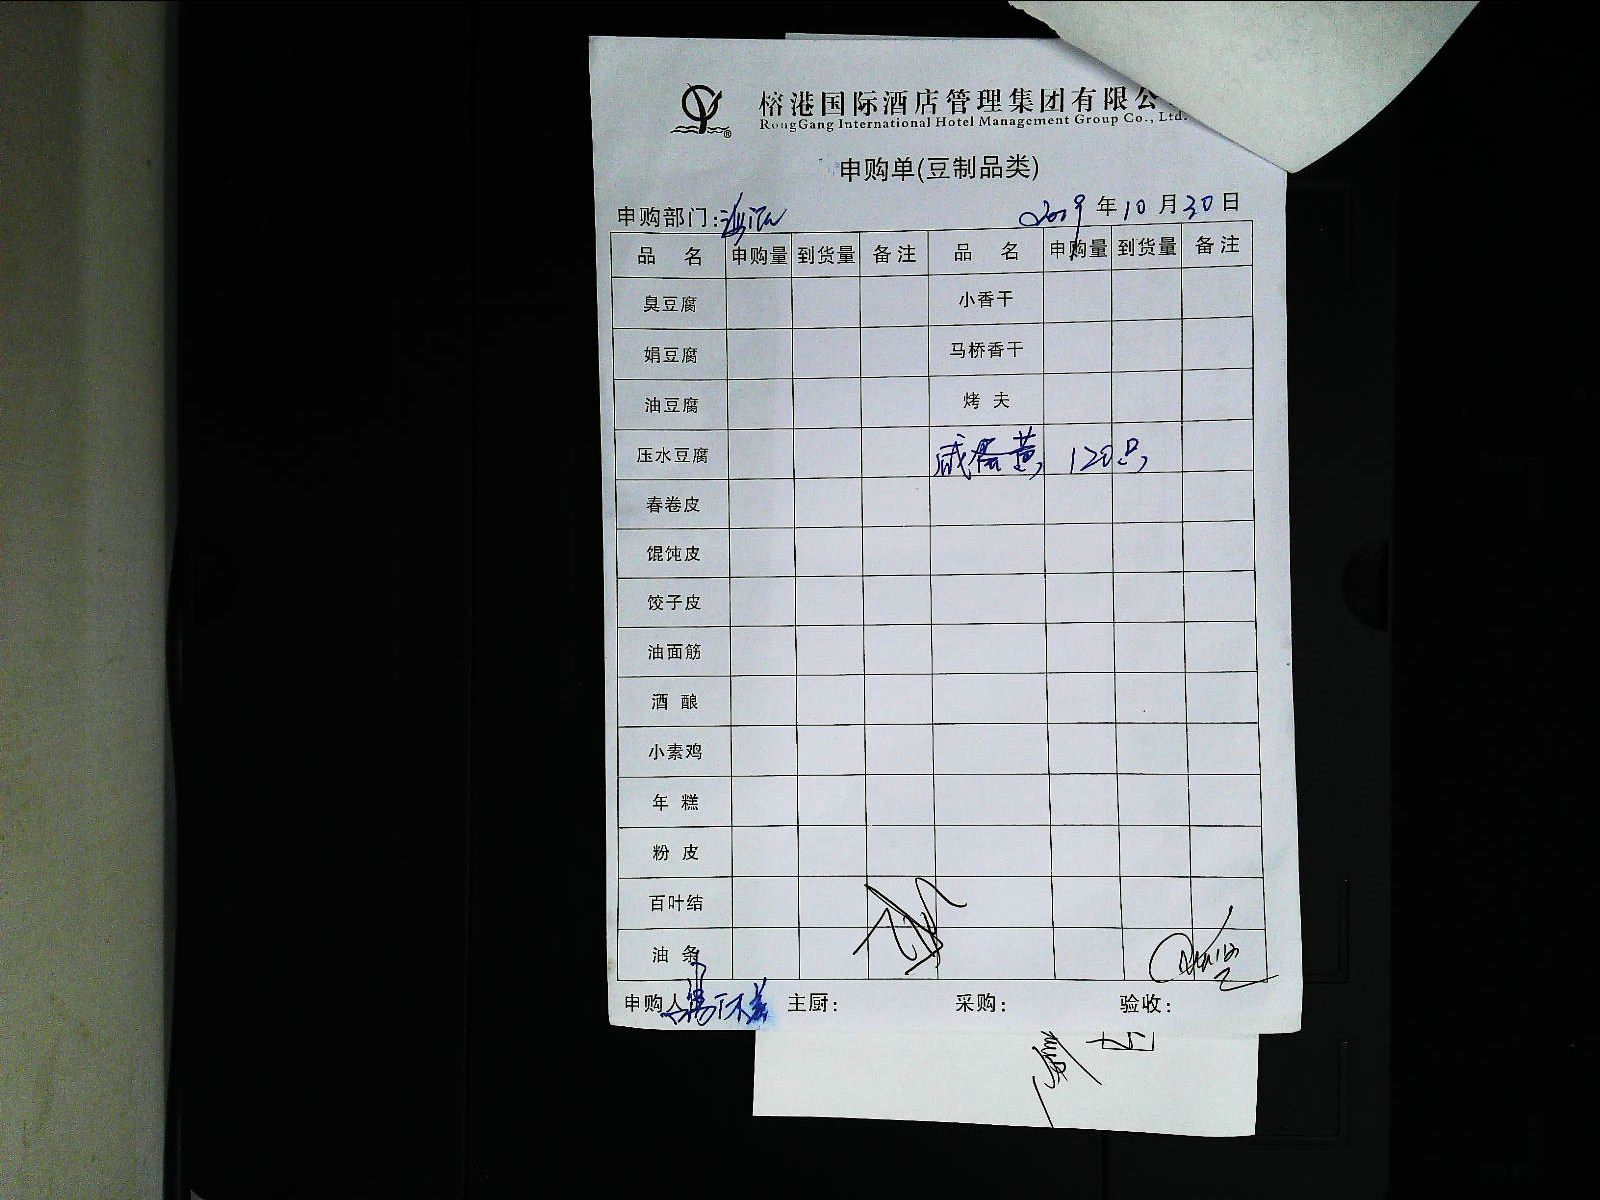 榕港国际酒店管理集团有限公
RongGang International Hotel Management Group Co., Ltd.
申购单(豆制品类)
申购部门: 2019 年 10 月 30 日
品 名 申购量 到货量 备注 品 名 申购量 到货量 备注
臭豆腐 小香干
娟豆腐 马桥香干
油豆腐 烤 夫
压水豆腐 咸蛋黄 120只
春卷皮
馄饨皮
饺子皮
油面筋
酒 酿
小素鸡
年 糕
粉 皮
百叶结
油 条
申购人 主厨: 采购: 验收: